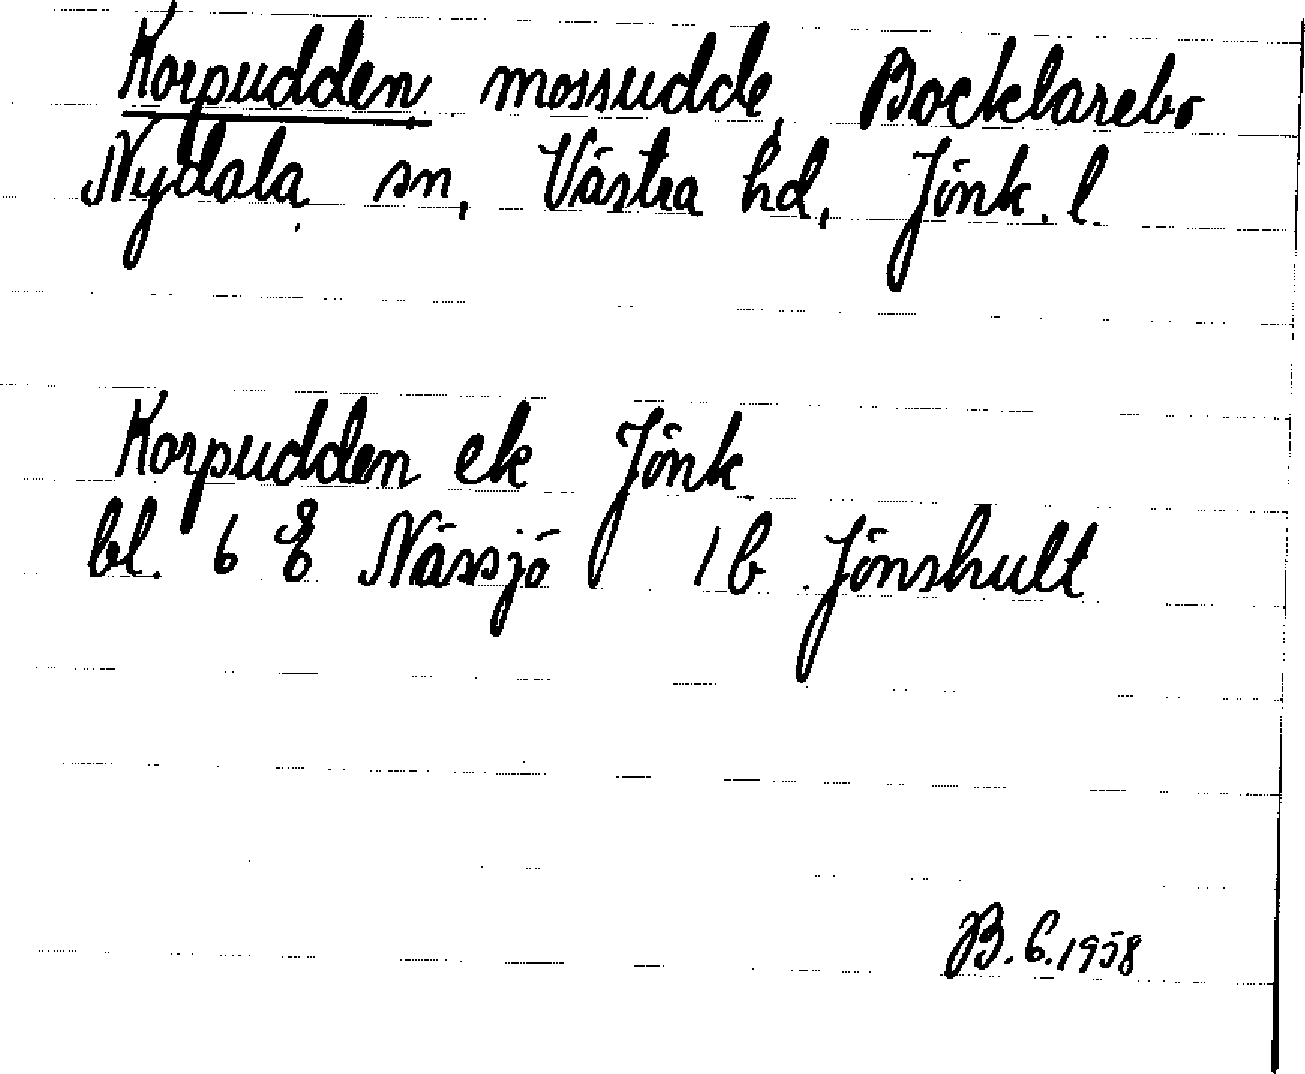 Korpudden mossudde, Bocklarebo
Nydala sn, Västra hd, Jönk. l.
Korpudden ek Jönk
bl. 6 E Nässjö 1 b Jönshult
B. G. 1958